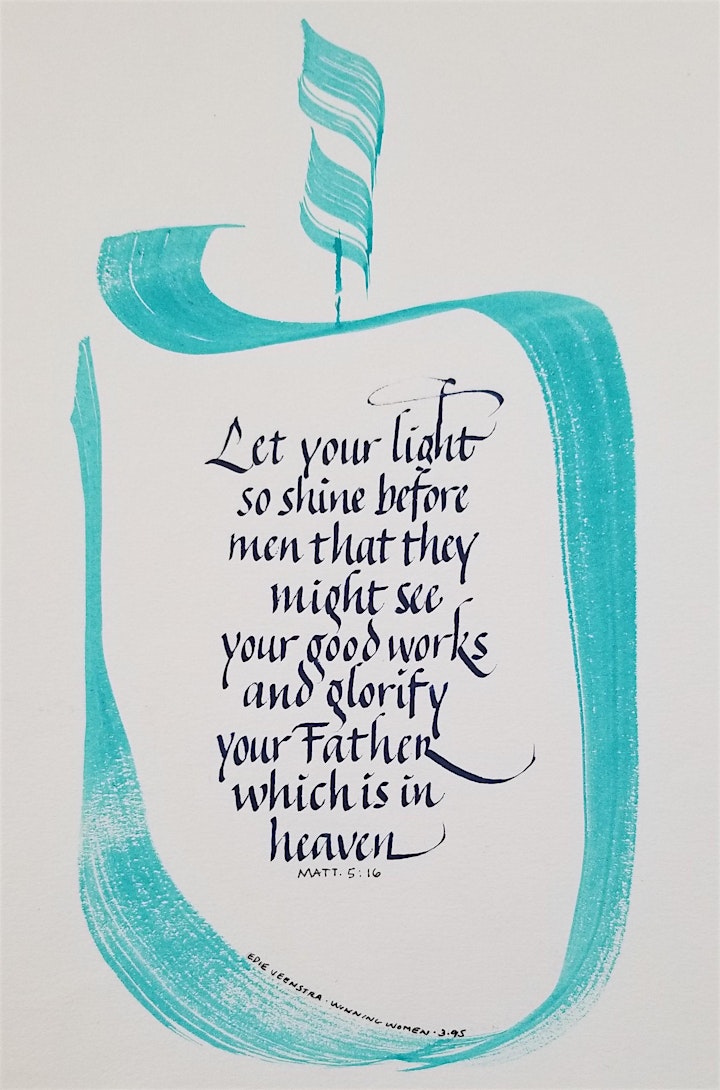 Let your light
so shine before
men that they
might see
your good works
and glorify
your Father
which is in
heaven
MATT. 5:16
EDIE VEENSTRA · WINNING WOMEN · 3.95